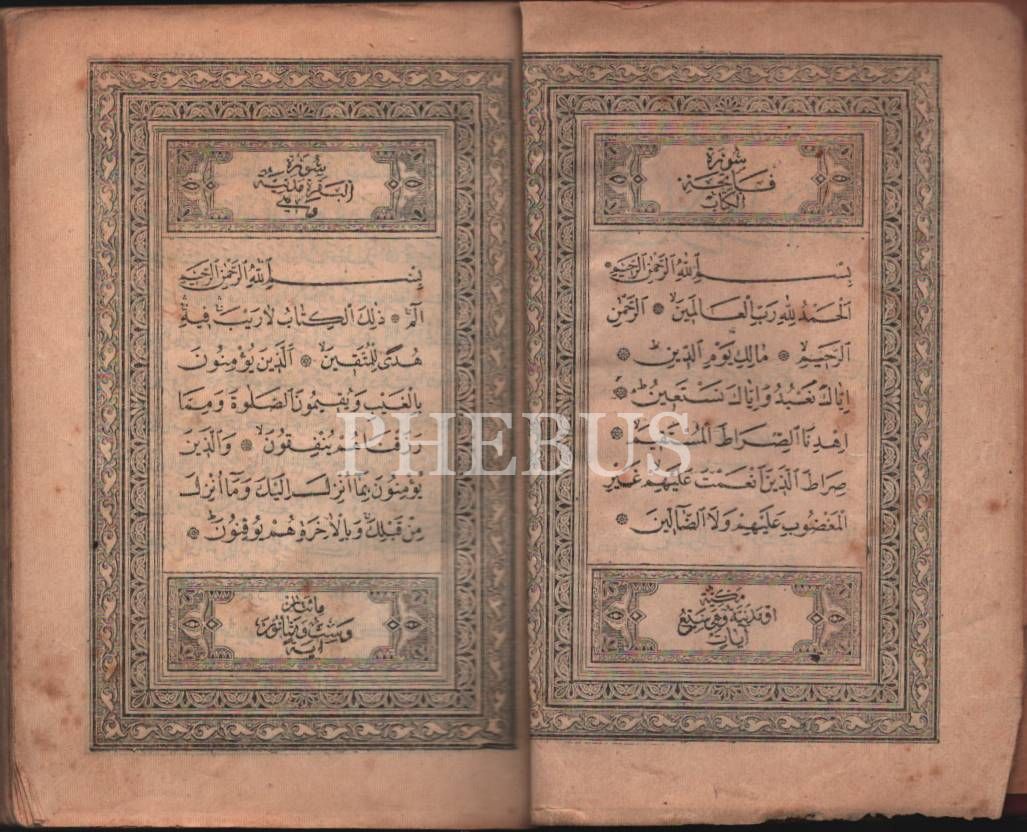 سورة
فاتحة
الكتاب
بسم الله الرحمن الرحيم
الحمد لله رب العالمين ۞ الرحمن
الرحيم ۞ مالك يوم الدين ۞
اياك نعبد واياك نستعين ۞
اهدنا الصراط المستقيم ۞
صراط الذين انعمت عليهم غير
المغضوب عليهم ولا الضالين ۞
مكية
او مدنية وهي سبع
آيات
سورة
البقرة مدنية
وهي
بسم الله الرحمن الرحيم
الم ۞ ذلك الكتاب لا ريب فيه
هدى للمتقين ۞ الذين يؤمنون
بالغيب ويقيمون الصلوة ومما
رزقناهم ينفقون ۞ والذين
يؤمنون بما انزل اليك وما انزل
من قبلك وبالاخرة هم يوقنون ۞
مائتان
وست وثمانون
آية
PHEBUS